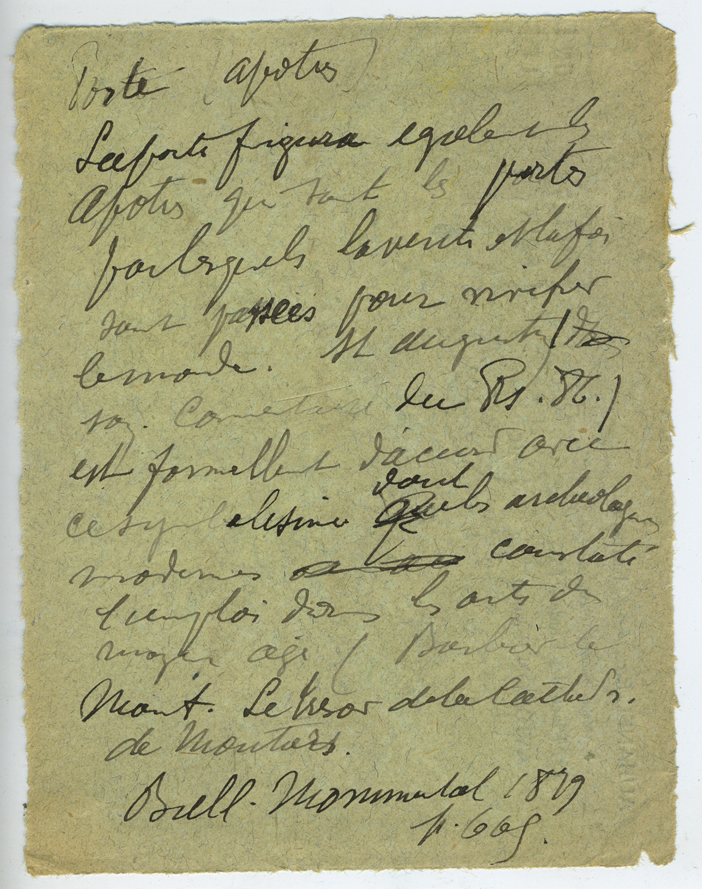 Porte (apotres)
La porte figura egalement les
Apotres qui sont les portes
par lesquels la verité et la foi
sont passées pour vivifier
le monde. St Augustin (dans
son Comentaire du Ps. 86.)
est formellement d'accord avec
ce symbolisme dont les archeologues
modernes constaté
l'emploi dans les arts du
moyen age (Barbier de
Mont. Le tresor de la Cathedr.
de Moutiers.
Bull. Monumental 1879
p. 605.